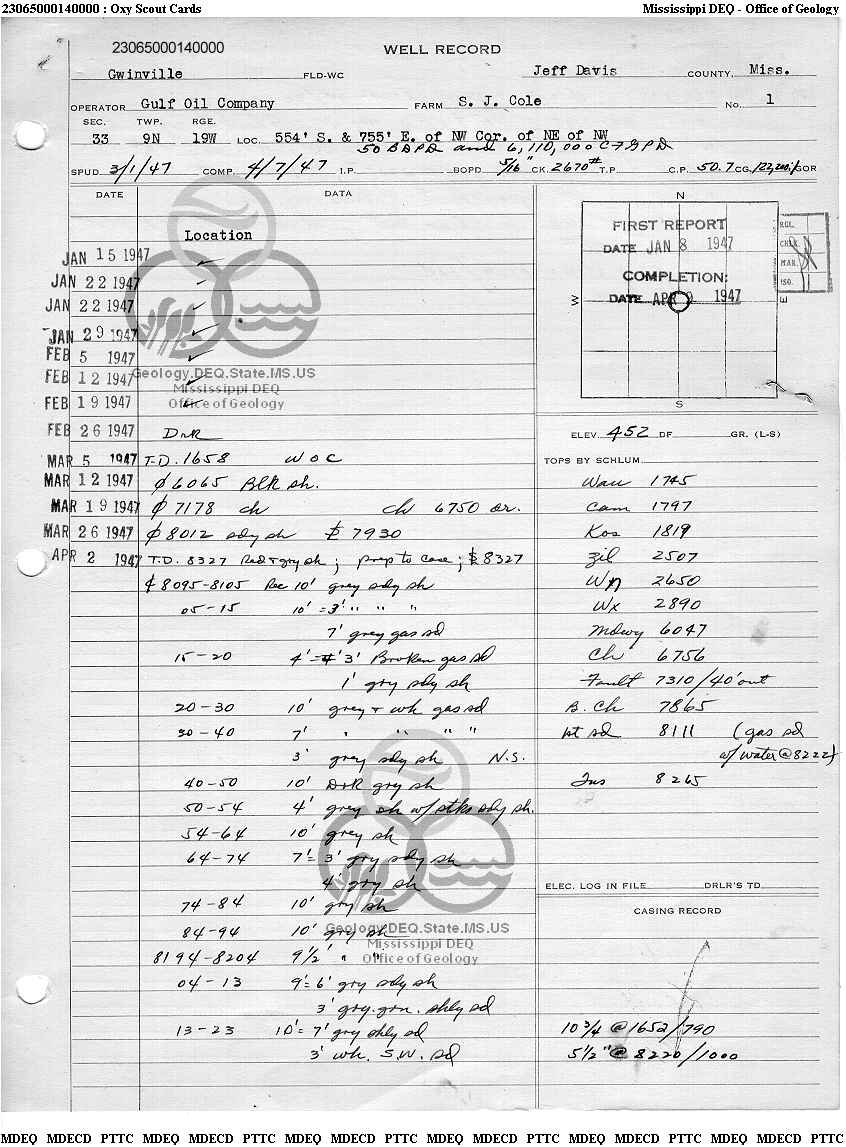 23065000140000 : Oxy Scout Cards Mississippi DEQ - Office of Geology
23065000140000 WELL RECORD
Gwinville FLD-WC Jeff Davis COUNTY, Miss.
OPERATOR Gulf Oil Company FARM S. J. Cole No. 1
SEC. TWP. RGE.
33 9N 19W LOC. 554' S. & 755' E. of NW Cor. of NE of NW
50 BDPD and 6,110,000 CFGPD
SPUD 3/1/47 COMP. 4/7/47 I.P. BOPD 5/16" CK. 2670# T.P. C.P. 50.7 CG, GOR
DATE DATA
Location
JAN 15 1947
JAN 22 1947
JAN 22 1947
JAN 29 1947
FEB 5 1947
FEB 12 1947
FEB 19 1947
FEB 26 1947 Drk
MAR 5 1947 T.D. 1658 WOC
MAR 12 1947 ¢ 6065 Blk sh.
MAR 19 1947 ¢ 7178 ch ch 6750 or.
MAR 26 1947 ¢ 8012 sdy sh $ 7930
APR 2 1947 T.D. 8327 Red & gry sh; prep to case; $ 8327
¢ 8095-8105 Rec 10' grey sdy sh
05-15 10' = 3' " " "
7' grey gas sd
15-20 4' = 3' Broken gas sd
1' gry sdy sh
20-30 10' grey & wh gas sd
30-40 7' " " " "
3' grey sdy sh N.S.
40-50 10' Drk gry sh
50-54 4' grey sh w/ stks sdy sh.
54-64 10' grey sh
64-74 7' = 3' gry sdy sh
4' gry sh
74-84 10' gry sh
84-94 10' gry sh
8194-8204 9½' " "
04-13 9' = 6' gry sdy sh
3' gry. grn. shly sd
13-23 10' = 7' gry shly sd
3' wh. S.W. sd
N
W E
S
FIRST REPORT
DATE JAN 8 1947
COMPLETION:
DATE APR 9 1947
RGL.
CHLK.
MAR.
ISO.
ELEV. 452 DF GR. (L-S)
TOPS BY SCHLUM.
Wau 1745
Cam 1797
Kos 1819
Zil 2507
Wn 2650
Wx 2890
Mdwy 6047
Ch 6756
Fault 7310/40' out
B. Ch 7865
1st sd 8111 (gas sd
w/ water @ 8222)
Tus 8265
ELEC. LOG IN FILE DRLR'S TD
CASING RECORD
10 3/4 @ 1652/790
5½" @ 8220/1000
Geology.DEQ.State.MS.US
Mississippi DEQ
Office of Geology
Geology.DEQ.State.MS.US
Mississippi DEQ
Office of Geology
MDEQ MDECD PTTC MDEQ MDECD PTTC MDEQ MDECD PTTC MDEQ MDECD PTTC MDEQ MDECD PTTC MDEQ MDECD PTTC